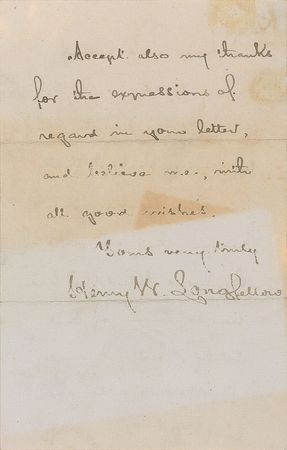 Accept also my thanks
for the expressions of
regard in your letter,
and believe me, with
all good wishes.
Yours very truly
Henry W. Longfellow